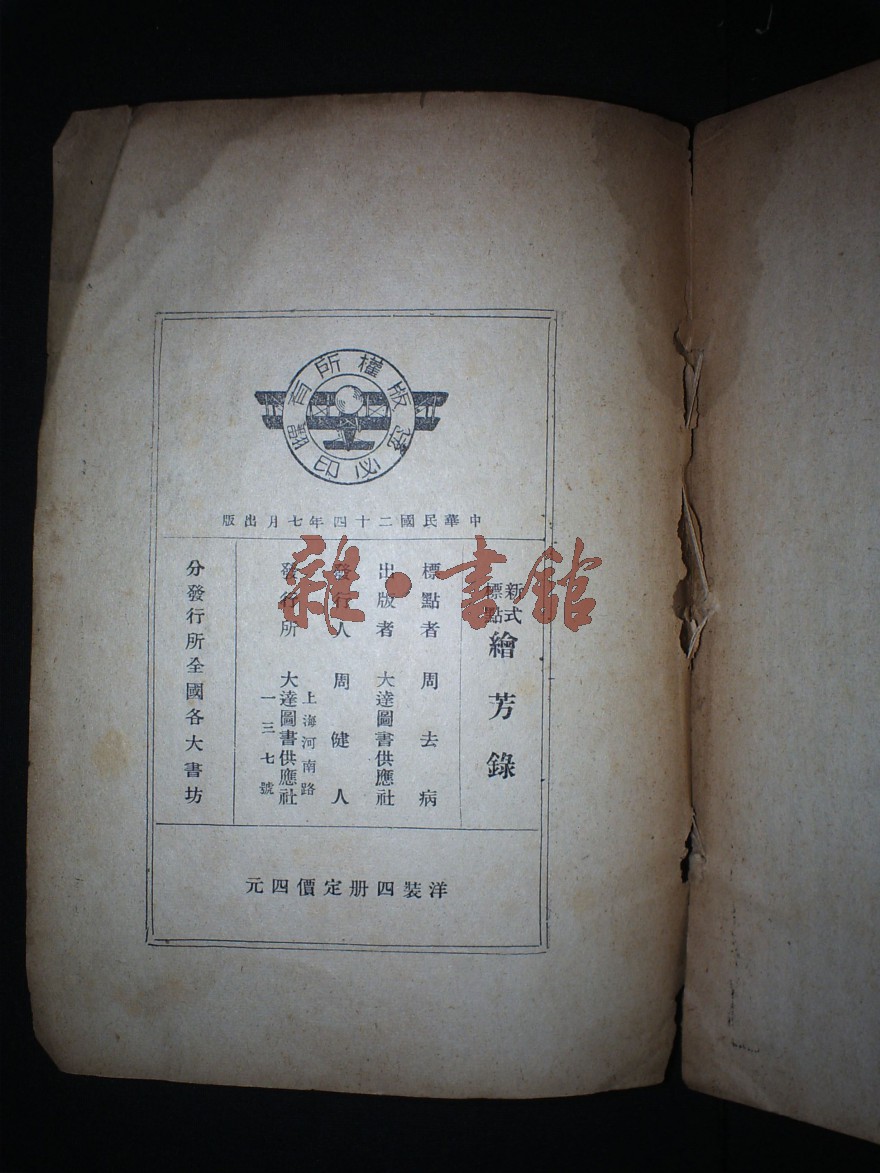 版權所有
翻印必究
中華民國二十四年七月出版
新式標點
繪芳錄
標點者 周去病
出版者 大達圖書供應社
發行人 周健人
上海河南路
發行所 大達圖書供應社
一三七號
分發行所全國各大書坊
洋裝四册定價四元
雜·書館